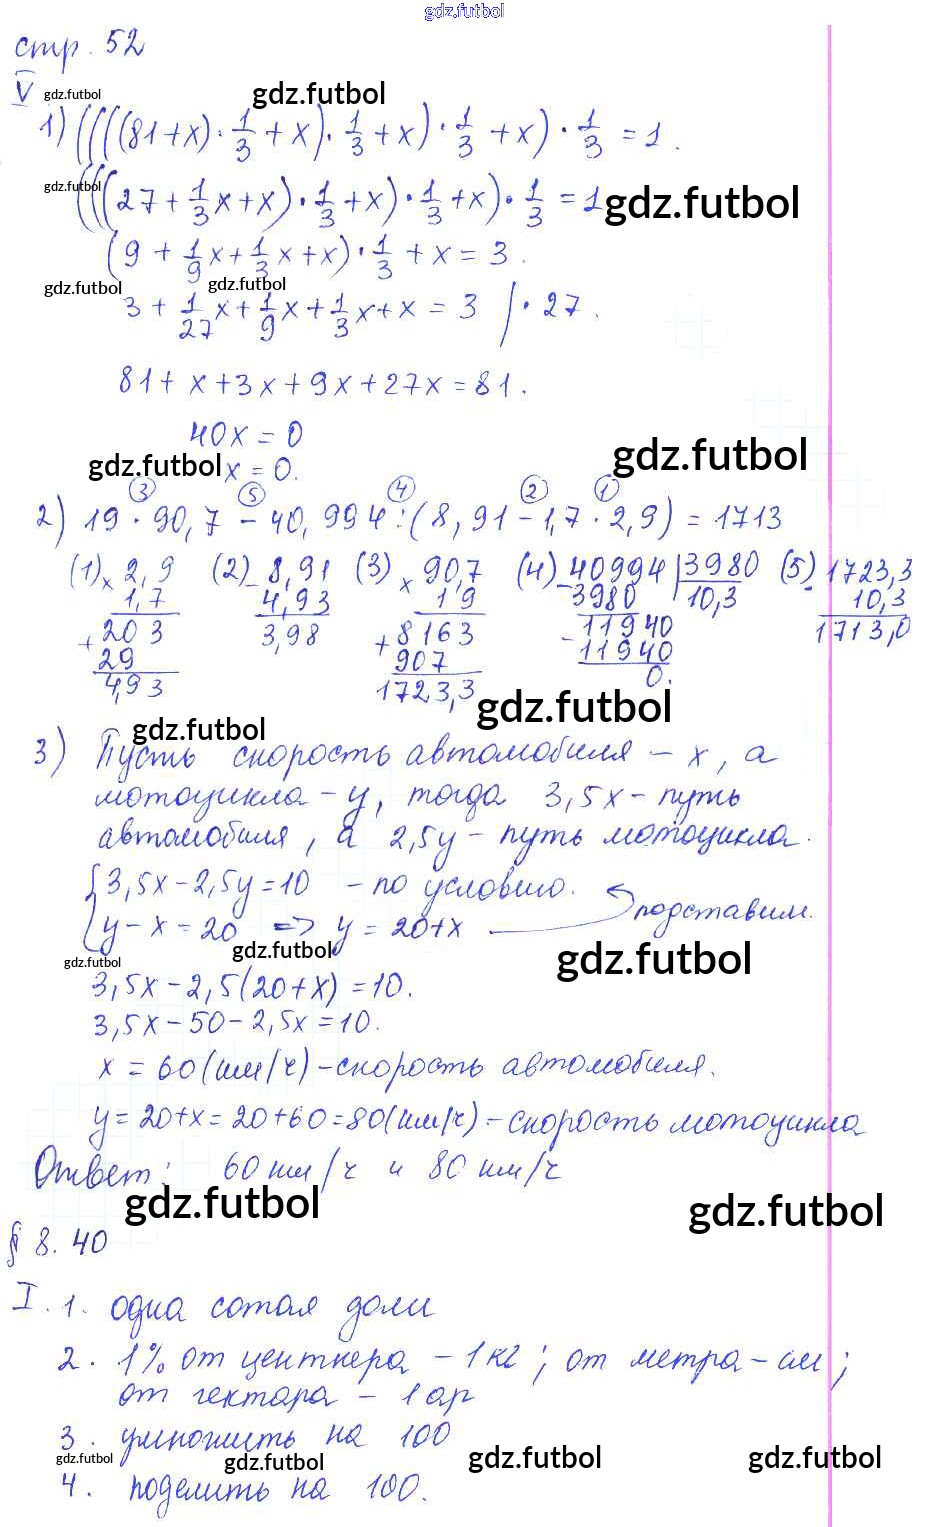 gdz.futbol
стр. 52
V gdz.futbol gdz.futbol
1) ((((81+x)·1/3+x)·1/3+x)·1/3+x)·1/3=1.
gdz.futbol (((27+1/3x+x)·1/3+x)·1/3+x)·1/3=1 gdz.futbol
(9+1/9x+1/3x+x)·1/3+x=3.
gdz.futbol gdz.futbol
3+1/27x+1/9x+1/3x+x=3 |·27.
81+x+3x+9x+27x=81.
40x=0
gdz.futbol x=0. gdz.futbol
③ ⑤ ④ ② ①
2) 19·90,7-40,994:(8,91-1,7·2,9)=1713
(1) × 2,9 (2) - 8,91 (3) × 90,7 (4) - 40994 | 3980 (5) - 1723,3
1,7 4,93 19 3980 10,3 10,3
+ 203 3,98 + 8163 - 11940 1713,0
29 907 11940
4,93 1723,3 0.
gdz.futbol gdz.futbol
3) Пусть скорость автомобиля - x, а
мотоцикла - y, тогда 3,5x - путь
автомобиля, а 2,5y - путь мотоцикла.
{3,5x-2,5y=10 - по условию.
y-x=20 => y=20+x подставим.
gdz.futbol gdz.futbol gdz.futbol
3,5x-2,5(20+x)=10.
3,5x-50-2,5x=10.
x=60(км/ч)-скорость автомобиля.
y=20+x=20+60=80(км/ч)-скорость мотоцикла
Ответ: 60 км/ч и 80 км/ч
gdz.futbol gdz.futbol
§ 8.40
I. 1. одна сотая доли
2. 1% от центнера - 1кг; от метра - см;
от гектара - 1 ар
3. умножить на 100
gdz.futbol gdz.futbol gdz.futbol gdz.futbol
4. поделить на 100.